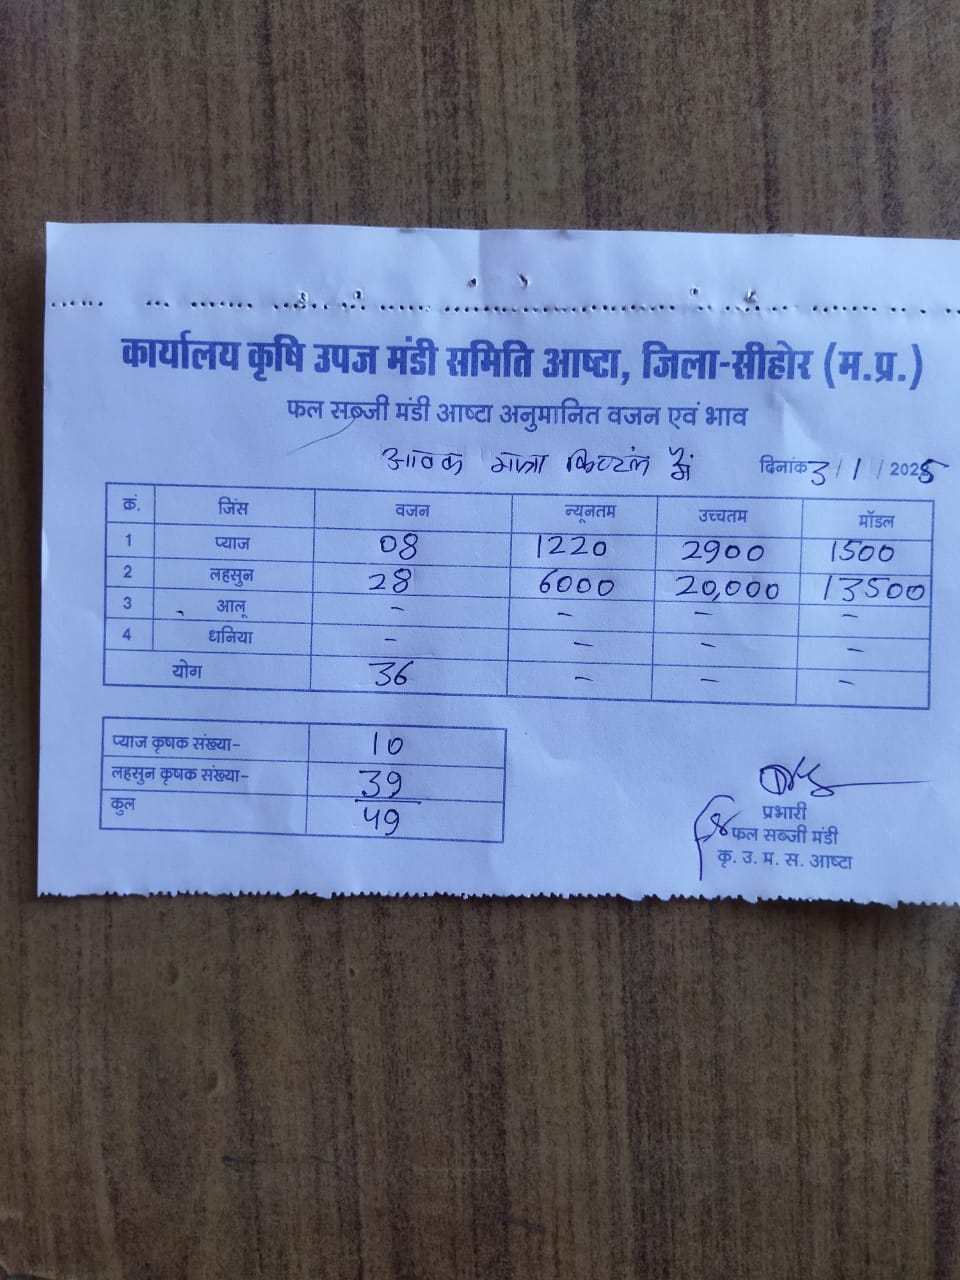 कार्यालय कृषि उपज मंडी समिति आष्टा, जिला-सीहोर (म.प्र.)
फल सब्जी मंडी आष्टा अनुमानित वजन एवं भाव
आवक मात्रा क्विंटल में दिनांक 3/1/2025
क्रं. जिंस वजन न्यूनतम उच्चतम मॉडल
1 प्याज 08 1220 2900 1500
2 लहसुन 28 6000 20,000 13500
3 आलू - - - -
4 धनिया - - - -
योग 36 - - -
प्याज कृषक संख्या- 10
लहसुन कृषक संख्या- 39
कुल 49
प्रभारी
फल सब्जी मंडी
कृ. उ. म. स. आष्टा